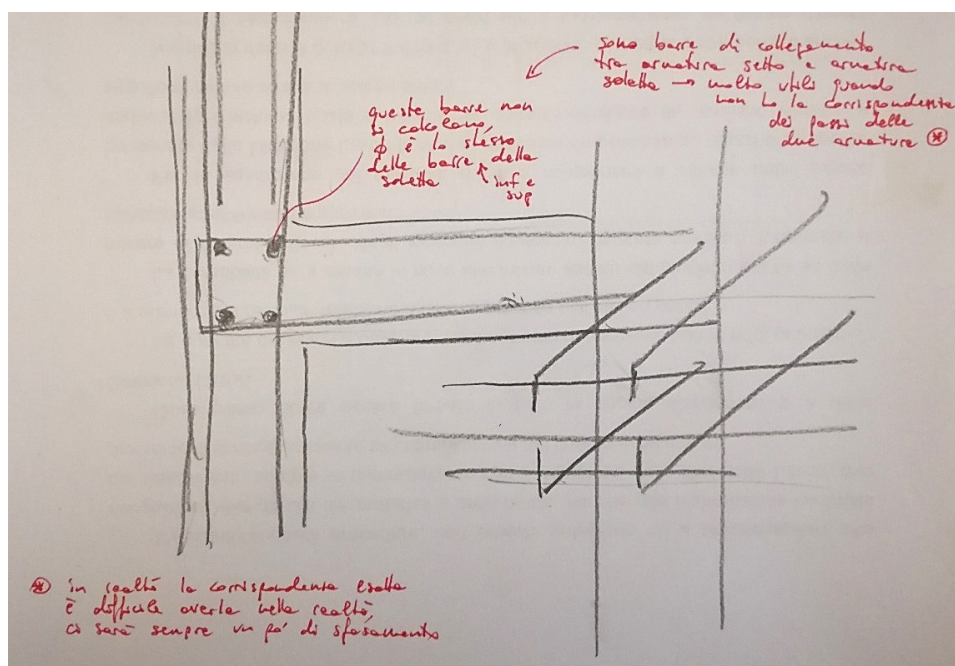 sono barre di collegamento
tra armatura setto e armatura
soletta → molto utili quando
non ho la corrispondenza
dei passi delle
due armature *
queste barre non
si calcolano,
ϕ è lo stesso
delle barre della
soletta ↑ inf e
sup
* in realtà la corrispondenza esatta
è difficile averla nella realtà,
ci sarà sempre un pò di sfasamento